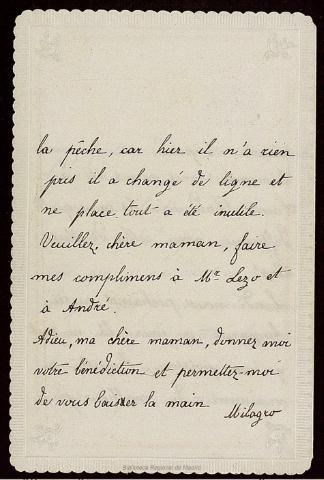 la pêche, car hier il n'a rien
pris il a changé de ligne et
de place tout a été inutile.
Veuillez, chère maman, faire
mes complimens à Mr Lezo et
à André.
Adieu, ma chère maman, donnez moi
votre bénédiction et permettez-moi
de vous baiser la main
Milagro
Biblioteca Regional de Madrid